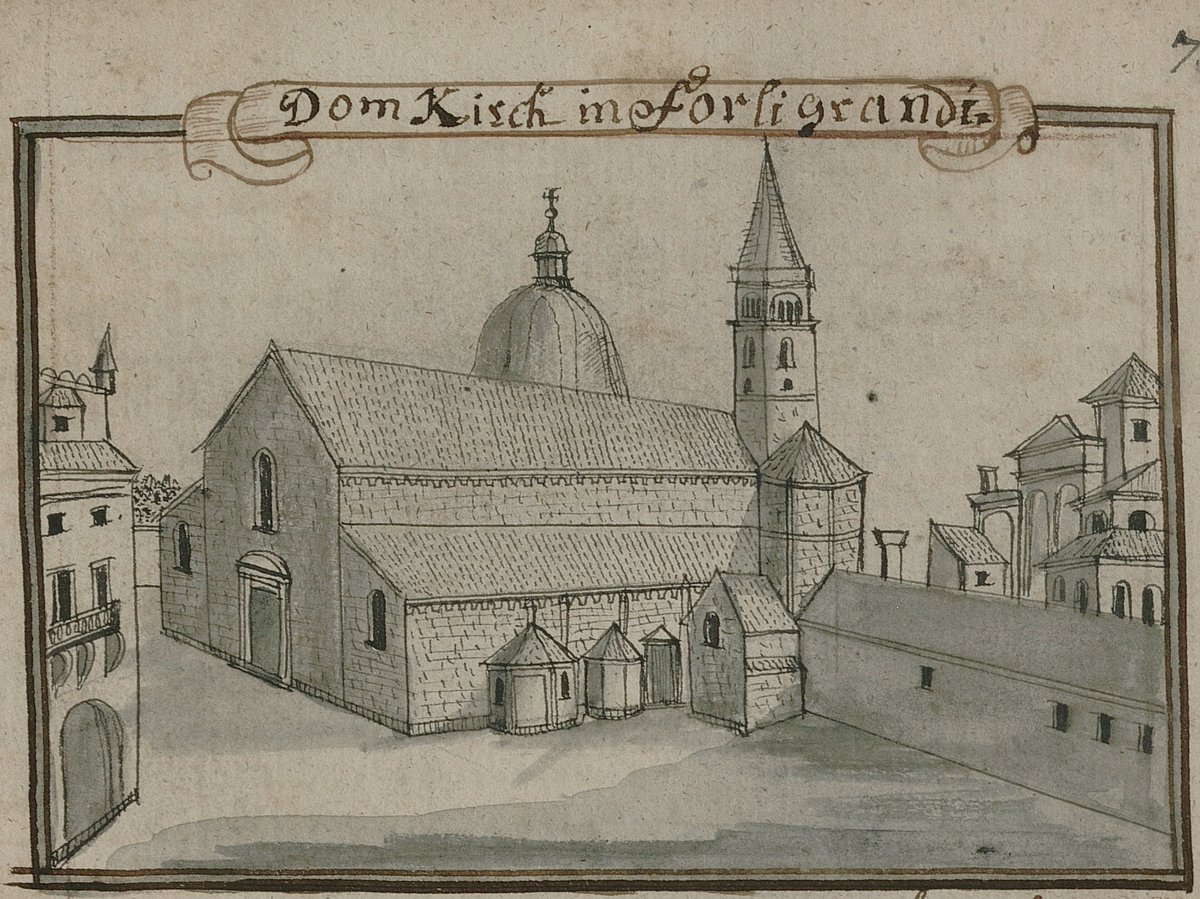 7.
Dom Kirch in Forli grandi.